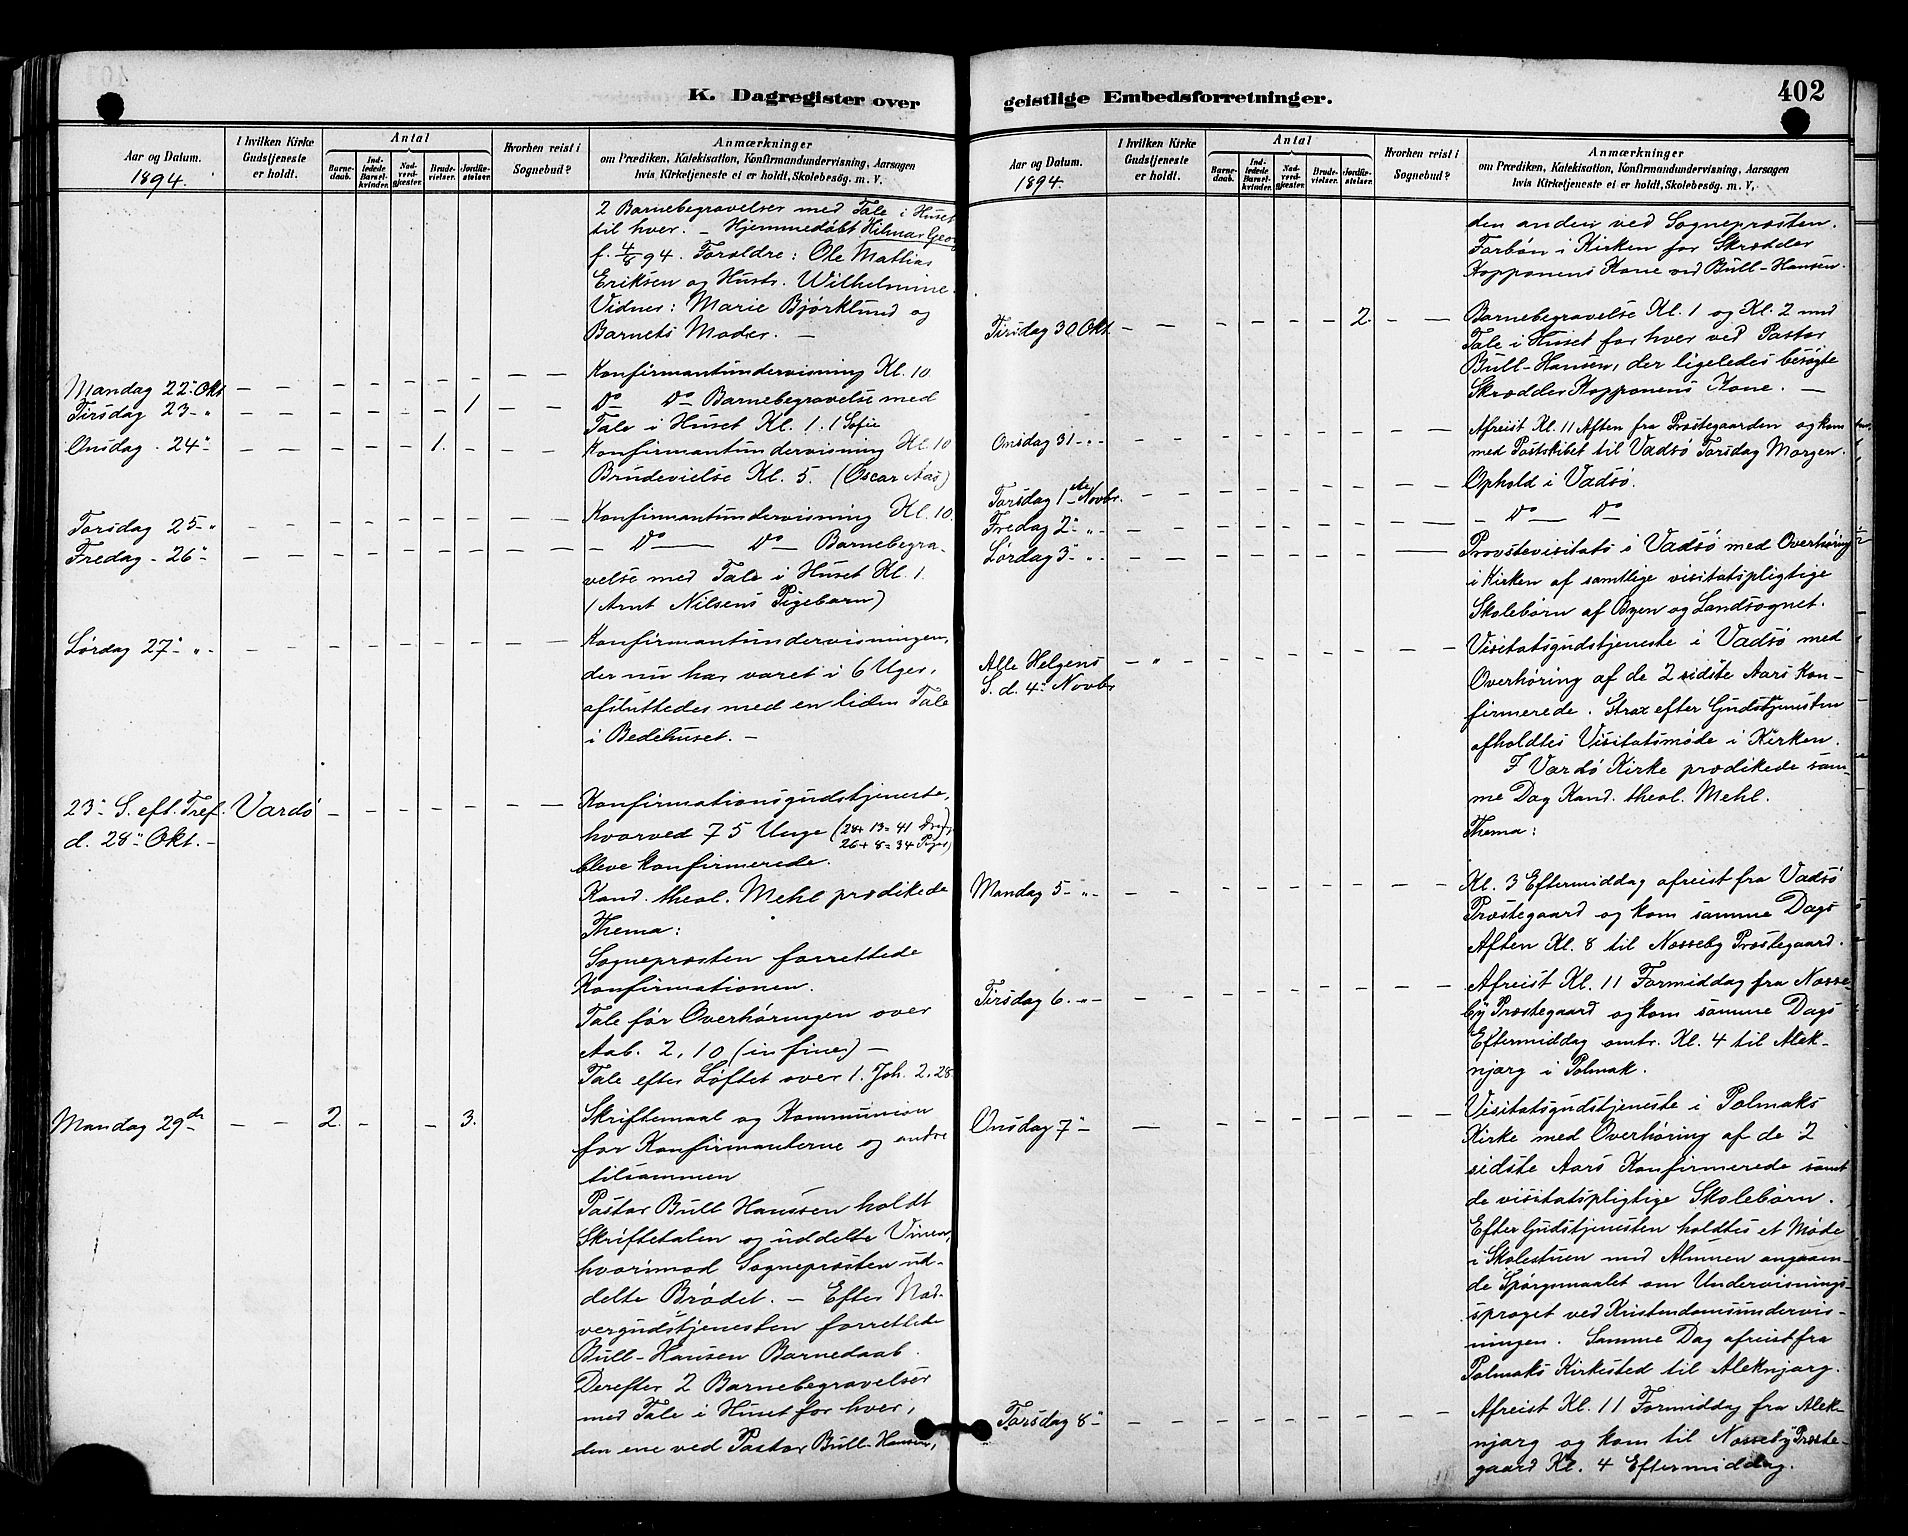 K. Dagregister over
Aar og Datum.
1894.
I hvilken Kirke Gudstjeneste er holdt.
Antal
Barnedaab.
Indledede Barselkvinder.
Nadverdgjæster.
Brudevielser.
Jordfæstelser.
Hvorhen reist i Sognebud?
Anmærkninger
om Prædiken, Katekisation, Konfirmandundervisning, Aarsagen
hvis Kirketjeneste ei er holdt, Skolebesøg. m. V.
2 Barnebegravelser med Tale i Huset
til hver. – Hjemmedøbt Hilmar Georg
f. 4/8 94. Forældre: Ole Mathias
Eriksen og Hustr. Wilhelmine.
Vidner: Marie Bjørklund og
Barnets Moder. –
Mandag 22 Okt – – – – – – – – – Konfirmantundervisning Kl. 10
Tirsdag 23 – " – – – – – – 1 – – Do Do Barnebegravelse med
Tale i Huset Kl. 1. 1 Sofie
Onsdag 24 " – – – – – 1. – – – Konfirmantundervisning Kl. 10
Brudevielse Kl. 5. (Oscar Aas)
Torsdag 25 – " – – – – – – – – – Konfirmantundervisning Kl. 10.
Fredag – 26 " – – – – – – – – – – Do – Do – Barnebegra-
velse med Tale i Huset Kl. 1.
(Arnt Nilsens Pigebarn)
Lørdag 27 – " – – – – – – – – – Konfirmantundervisningen,
der nu har varet i 6 Uger,
afsluttedes med en liden Tale
i Bedehuset. –
23 – S. eft. Tref. Vardø – – – – – – – Konfirmationsgudstjeneste,
d. 28 Okt. – hvorved 75 Unge (28 + 13 = 41
26 + 8 = 34 Piger)
bleve konfirmerede.
Kand. theol. Mehl prædikede
Thema:
Sognepræsten forrettede
Konfirmationen.
Tale før Overhøringen over
Aab. 2, 10 (in fine) –
Tale efter Løftet over 1. Joh. 2. 28
Mandag 29de – – 2. – – 3. Skriftemaal og Kommunion
for Konfirmanterne og andre
tilsammen
Pastor Bull Hanssen holdt
Skriftetalen og uddelte Vinen,
hvorimod Sognepræsten ud-
delte Brødet. – Efter Nad-
vergudstjenesten forrettede
Bull-Hansen Barnedaab.
Derefter 2 Barnebegravelser
med Tale i Huset for hver,
den ene ved Pastor Bull-Hansen,
geistlige Embedsforretninger.
402
Aar og Datum.
1894.
I hvilken Kirke Gudstjeneste er holdt.
Antal
Barnedaab.
Indledede Barselkvinder.
Nadverdgjæster.
Brudevielser.
Jordfæstelser.
Hvorhen reist i Sognebud?
Anmærkninger
om Prædiken, Katekisation, Konfirmandundervisning, Aarsagen
hvis Kirketjeneste ei er holdt, Skolebesøg. m. V.
den anden ved Sognepræsten.
Forbøn i Kirken for Skrædder
Kopponens Kone ved Bull-Hansen.
Tirsdag 30 Okt – – – – – – 2 – – Barnebegravelse Kl. 1 og Kl. 2 med
Tale i Huset for hver ved Pastor
Bull-Hansen, der ligeledes besøgte
Skrædder Kopponens Kone. –
Onsdag 31 – " – – – – – – – – – – Afreist Kl. 11 Aften fra Præstegaarden og kom
med Postskibet til Vadsø Torsdag Morgen.
Torsdag 1ste Novbr. – – – – – – – – – Ophold i Vadsø.
Fredag 2 – " – – – – – – – – – – – Do – Do
Lørdag 3 – " – – – – – – – – – – Provstevisitats i Vadsø med Overhøring
i Kirken af samtlige visitatspligtige
Skolebørn af Byen og Landsognet.
Alle Helgens – " – – – – – – – Visitatsgudstjeneste i Vadsø med
S. d. 4 Novbr Overhøring af de 2 sidste Aars Kon-
firmerede. Strax efter Gudstjenesten
afholdtes Visitatsmøde i Kirken.
I Vardø Kirke prædikede sam-
me Dag Kand. theol. Mehl.
Thema:
Mandag 5 – " – – – – – – – – – – Kl. 3 Eftermiddag afreist fra Vadsø
Præstegaard og kom samme Dags
Aften Kl. 8 til Nesseby Præstegaard.
Tirsdag 6. " – – – – – – – – – – Afreist Kl. 11 Formiddag fra Nesse-
by Præstegaard og kom samme Dags
Eftermiddag omtr. Kl. 4 til Alek-
njarg i Polmak.
Onsdag 7 – – – – – – – – – – Visitatsgudstjeneste i Polmaks
Kirke med Overhøring af de 2
sidste Aars Konfirmerede samt
de visitatspligtige Skolebørn.
Efter Gudstjenesten holdtes et Møde
i Skolestuen med Almuen angaaen-
de Spørgsmaalet om Undervisnings-
sproget ved Kristendomsundervis-
ningen. Samme Dag afreist fra
Polmaks Kirkested til Aleknjarg.
Torsdag 8 – – – – – – – – – – Afreist Kl. 11 Formiddag fra Alek-
njarg og kom til Nesseby Præste-
gaard Kl. 4 Eftermiddag.